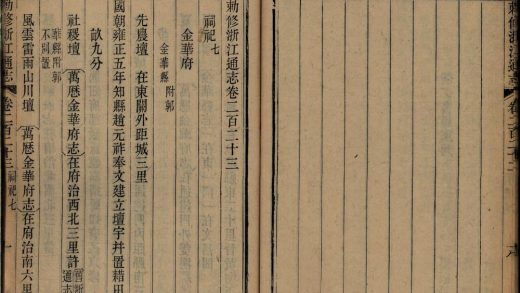 勅修浙江通志卷二百二十三
祠祀七
金華府
金華縣附郭
先農壇 在東關外距城三里
國朝雍正五年知縣趙元祚奉文建立壇宇并置耤田
畝九分
社稷壇 萬曆金華府志在府治西北三里許舊浙通志
華縣附郭不同置
風雲雷雨山川壇 萬曆金華府志在府治南六里
勅修浙江通志 卷二百二十三 祠祀七 一